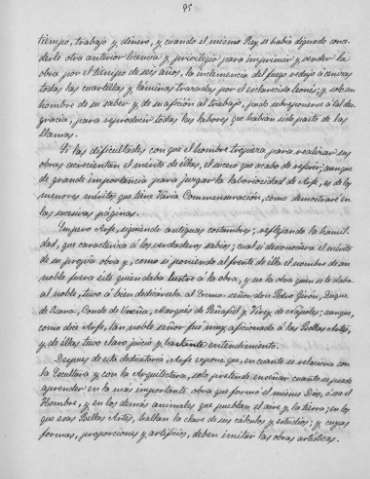 95
tiempo, trabajo y dinero, y cuando el mismo Rey se había dignado conce-
derle otra anterior licencia y privilegio para imprimir y vender la
obra por el tiempo de seis años, la inclemencia del fuego redujo á cenizas
todas las cuartillas y láminas trazadas por el esclarecido leonés; y solo un
hombre de su saber y de su afición al trabajo, pudo sobreponerse á tal des-
gracia, para reproducir todas las labores que habian sido pasto de las
llamas.
Si las dificultades con que el hombre tropieza para realizar sus
obras acrecientan el mérito de ellas, el suceso que acabo de referir, aunque
de grande importancia para juzgar la laboriosidad de Arfe, es de los
menores méritos que tiene Varia Commensuración, como demostraré en
las sucesivas páginas.
Empero Arfe, siguiendo antiguas costumbres; reflejando la humil-
dad, que caracteriza á los verdaderos sabios; cual si desconociera el mérito
de su propia obra y, como si poniendo al frente de ella el nombre de un
noble fuera este quien daba lustre á la obra, y no la obra quien se le daba
al noble, tuvo á bien dedicársela al Excmo. señor don Pedro Girón, Duque
de Osuna, Conde de Ureña, Marqués de Peñafiel y Virey de Nápoles; aunque,
como dice Arfe, tan noble señor fué muy aficionado á las Bellas Artes,
y de ellas tuvo claro juicio y bastante entendimiento.
Despues de esta dedicatoria, Arfe expone que, en cuanto se relaciona con
la Escultura y con la Arquitectura, solo pretende enseñar cuanto se puede
aprender en la más importante obra que formó el mismo Dios, ó sea el
Hombre, y en los demás animales que pueblan el aire y la tierra; en los
que esas Bellas Artes, hallan la clave de sus cálculos y estudios; y cuyas
formas, proporciones y artificios, deben imitar las obras artísticas.